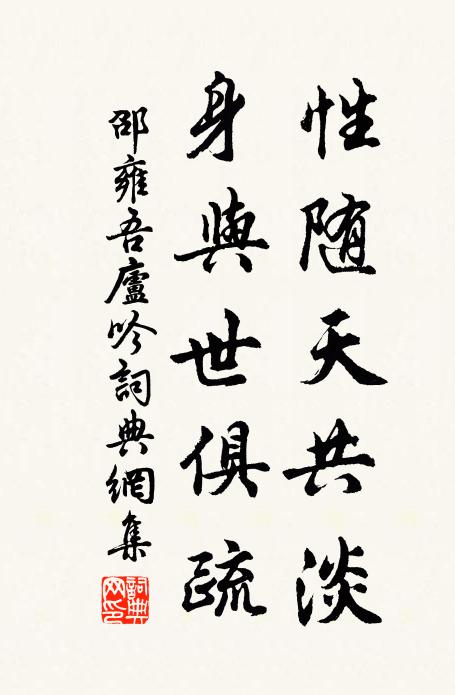 性随天共淡
身與世俱疏
邵雍吾廬吟詞典網集
詞典
網印